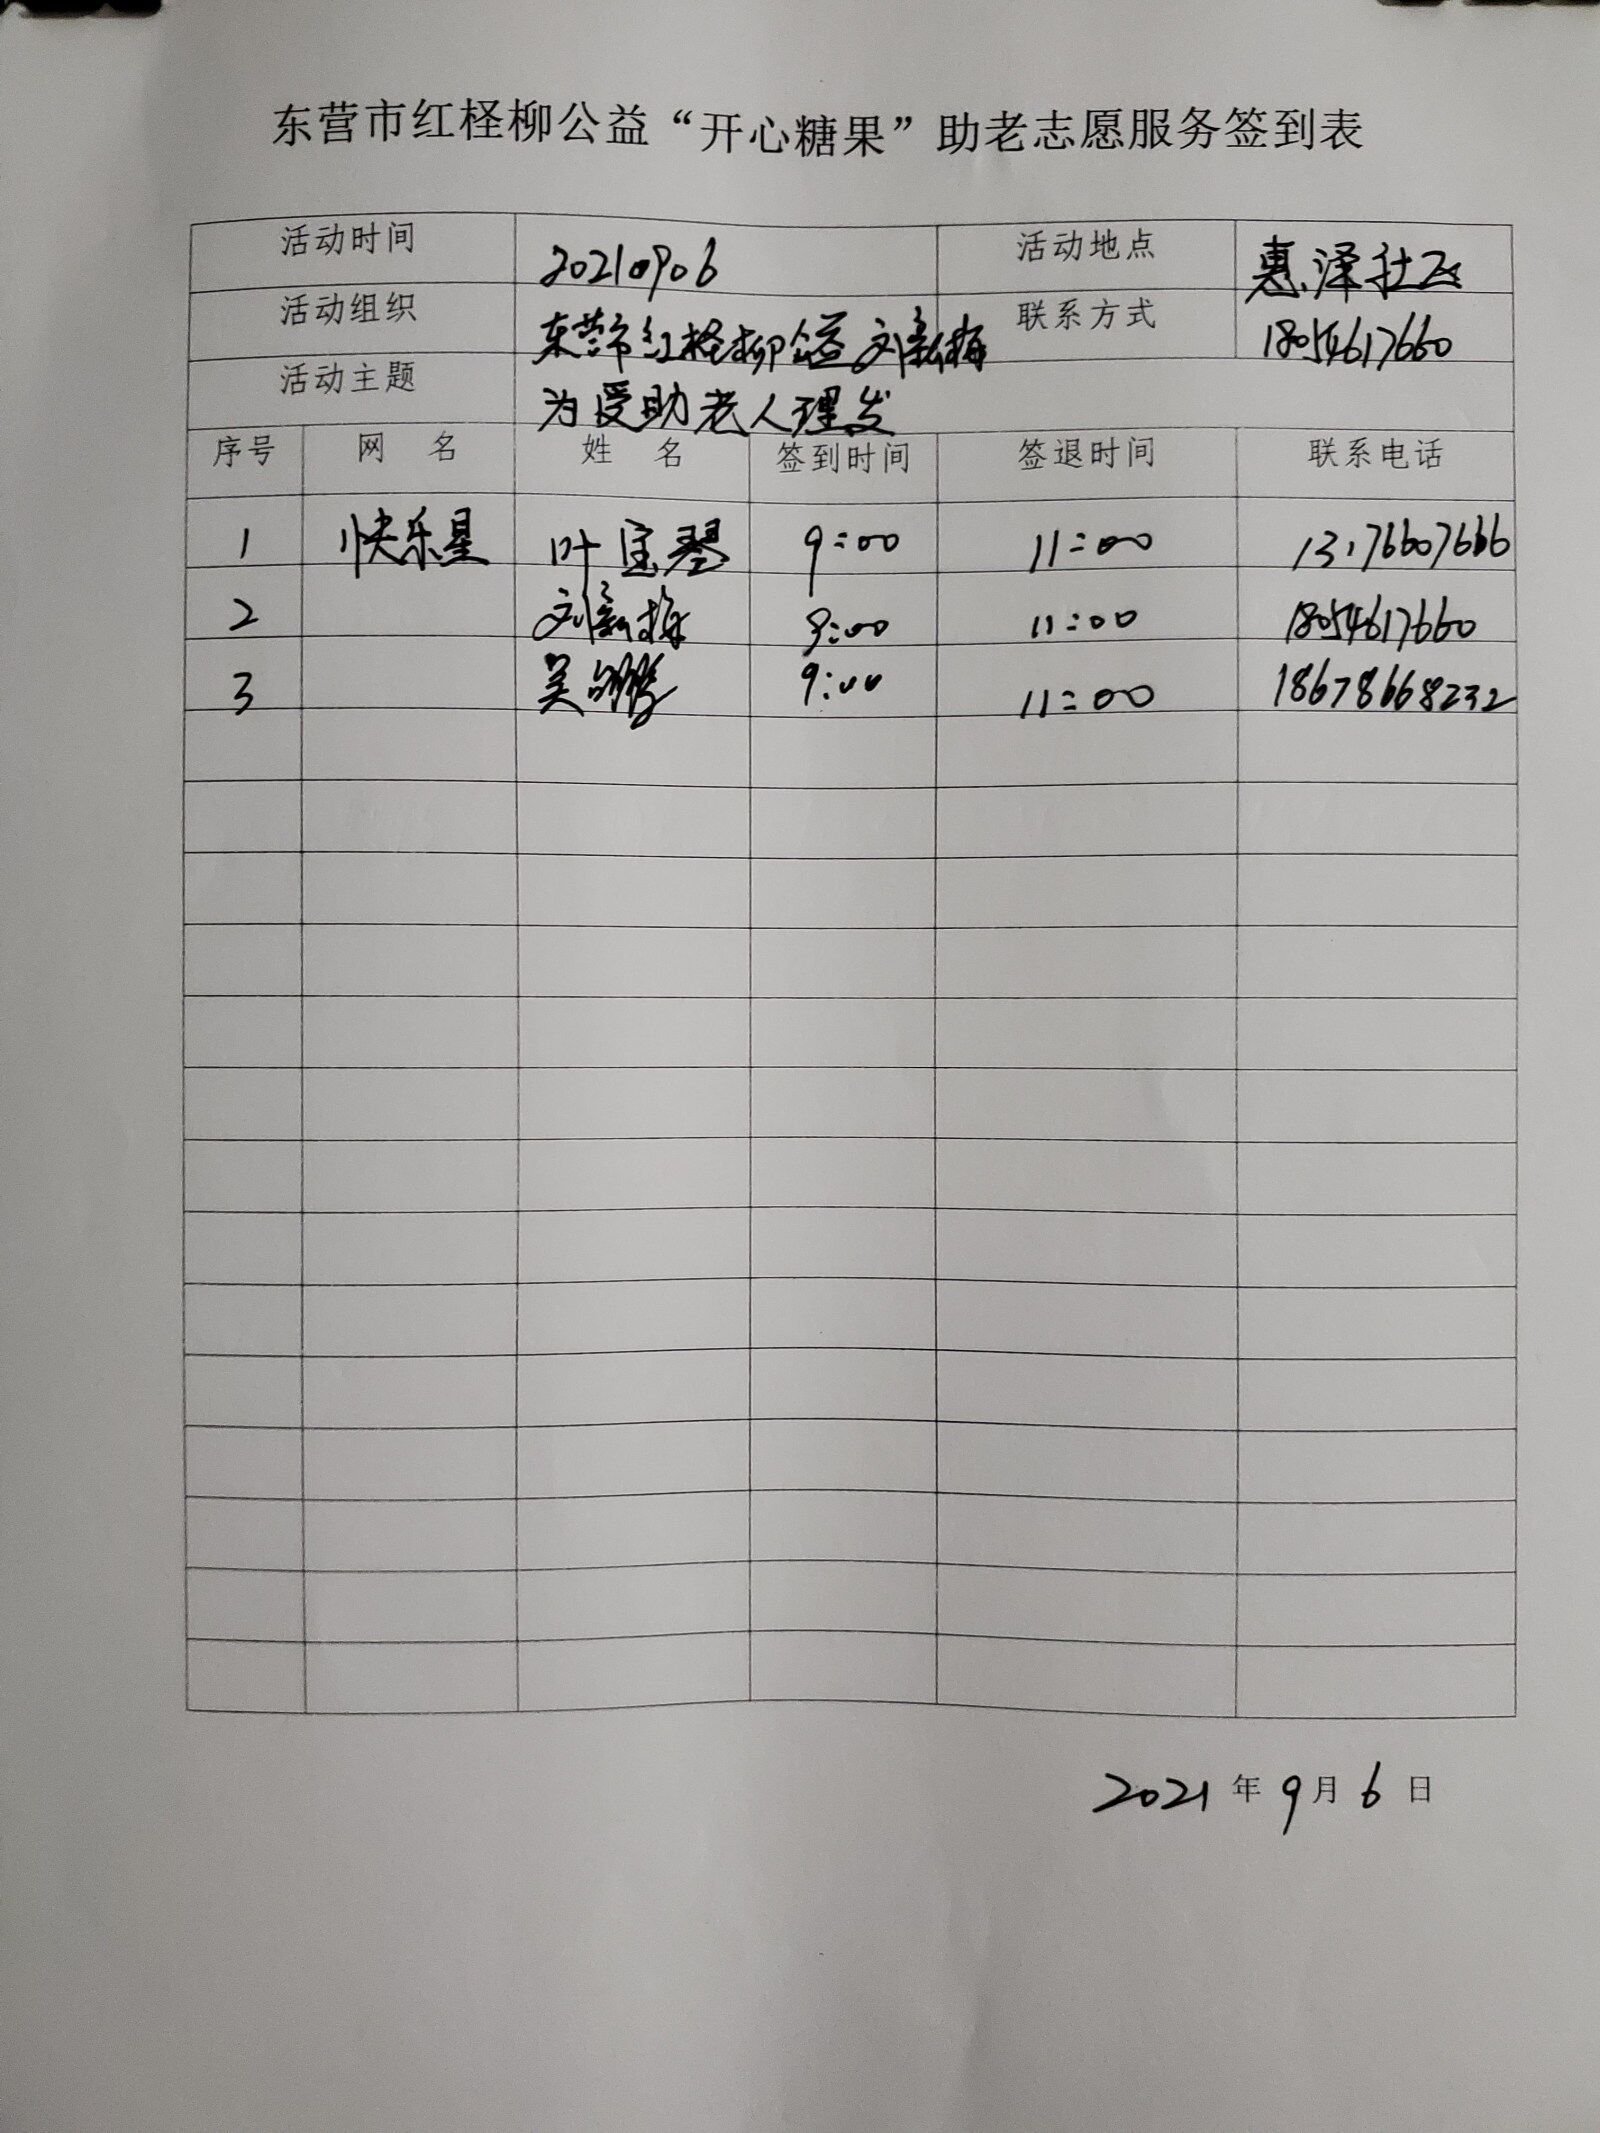 东营市红柽柳公益“开心糖果”助老志愿服务签到表
活动时间 20210906 活动地点 惠泽社区
活动组织 东营市红柽柳公益 刘新梅 联系方式 18054617660
活动主题 为受助老人理发
序号 网 名 姓 名 签到时间 签退时间 联系电话
1 快乐星 叶宝琴 9:00 11:00 13176607666
2 刘新梅 9:00 11:00 18054617660
3 吴 9:00 11:00 18678668232
2021 年 9 月 6 日